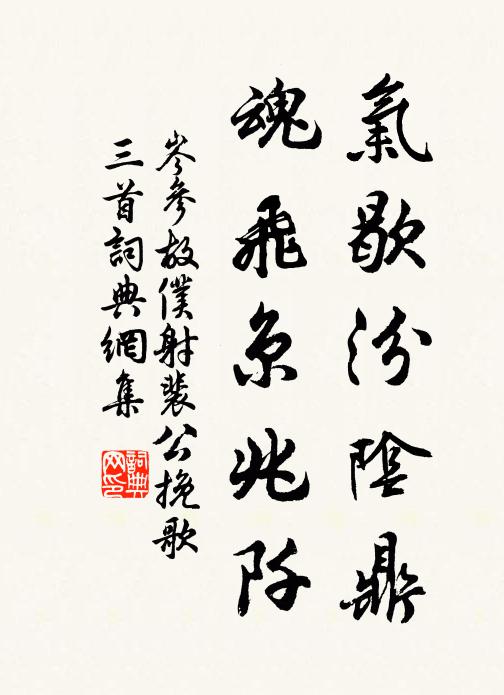 氣歇汾陰鼎
魂飛京兆阡
岑參故僕射裴公挽歌
三首詞典網集
詞典网印